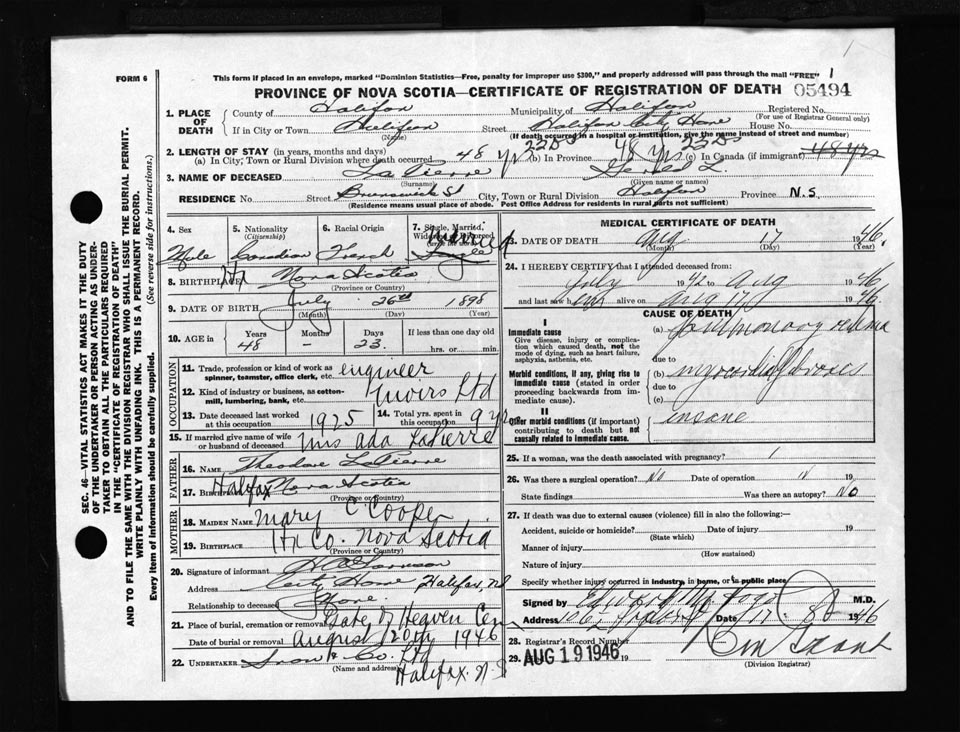 FORM 6
This form if placed in an envelope, marked "Dominion Statistics—Free, penalty for improper use $300," and properly addressed will pass through the mail "FREE" 1
PROVINCE OF NOVA SCOTIA—CERTIFICATE OF REGISTRATION OF DEATH 05494
1. PLACE OF DEATH
County of Halifax Municipality of Halifax Registered No.
(For use of Registrar General only)
If in City or Town Halifax Street Halifax City Home House No.
(Name) (If death occurred in a hospital or institution, give the name instead of street and number)
2. LENGTH OF STAY (in years, months and days)
(a) In City, Town or Rural Division where death occurred 48 yrs 22 Ds (b) In Province 48 yrs 22 Ds (c) In Canada (if immigrant) 48 yrs
3. NAME OF DECEASED LaPierre Gerald L.
(Surname) (Given name or names)
RESIDENCE No. Street Brunswick St City, Town or Rural Division Halifax Province N.S.
(Residence means usual place of abode. Post Office Address for residents in rural parts not sufficient)
4. Sex Male
5. Nationality (Citizenship) Canadian
6. Racial Origin French
7. Single, Married, Widowed or Divorced Married Single
8. BIRTHPLACE Hx Nova Scotia
(Province or Country)
9. DATE OF BIRTH July 26th 1898
(Month) (Day) (Year)
10. AGE in Years Months Days If less than one day old
48 – 23. hrs. or min.
OCCUPATION
11. Trade, profession or kind of work as spinner, teamster, office clerk, etc. engineer
12. Kind of industry or business, as cotton-mill, lumbering, bank, etc. Ltd
13. Date deceased last worked at this occupation 1925
14. Total yrs. spent in this occupation 9 yrs
15. If married give name of wife or husband of deceased Mrs Ada LaPierre
FATHER
16. Name Theodore LaPierre
17. Birthplace Halifax Nova Scotia
(Province or Country)
MOTHER
18. Maiden Name Mary C. Cooper
19. Birthplace Hx Co. Nova Scotia
(Province or Country)
20. Signature of informant
Address City Home Halifax, NS
Relationship to deceased None.
21. Place of burial, cremation or removal Gate of Heaven Cem
Date of burial or removal August 20th 1946
22. UNDERTAKER Snow & Co. Ltd
(Name and address) Halifax. N.S
MEDICAL CERTIFICATE OF DEATH
23. DATE OF DEATH Aug 17 1946.
(Month) (Day) (Year)
24. I HEREBY CERTIFY that I attended deceased from:
July 1942 to Aug 1946
and last saw him alive on Aug 17 1946.
CAUSE OF DEATH
I
Immediate cause
Give disease, injury or complication which caused death, not the mode of dying, such as heart failure, asphyxia, asthenia, etc.
(a) pulmonary edema
due to
Morbid conditions, if any, giving rise to immediate cause (stated in order proceeding backwards from immediate cause).
(b) myocardial fibrosis
due to
(c)
II
Other morbid conditions (if important) contributing to death but not causally related to immediate cause.
insane
25. If a woman, was the death associated with pregnancy?
26. Was there a surgical operation? No Date of operation 19
State findings Was there an autopsy? No
27. If death was due to external causes (violence) fill in also the following:—
Accident, suicide or homicide? Date of injury 19
(State which)
Manner of injury
(How sustained)
Nature of injury
Specify whether injury occurred in industry, in home, or in public place
Signed by M.D.
Address Date 17 8 1946
28. Registrar's Record Number
29. AUG 19 1946 19
(Division Registrar)
SEC. 46—VITAL STATISTICS ACT MAKES IT THE DUTY OF THE UNDERTAKER OR PERSON ACTING AS UNDERTAKER TO OBTAIN ALL THE PARTICULARS REQUIRED IN THE "CERTIFICATE OF REGISTRATION OF DEATH" AND TO FILE THE SAME WITH THE DIVISION REGISTRAR WHO SHALL ISSUE THE BURIAL PERMIT.
WRITE PLAINLY WITH UNFADING INK. THIS IS A PERMANENT RECORD.
Every item of information should be carefully supplied. (See reverse side for instructions.)